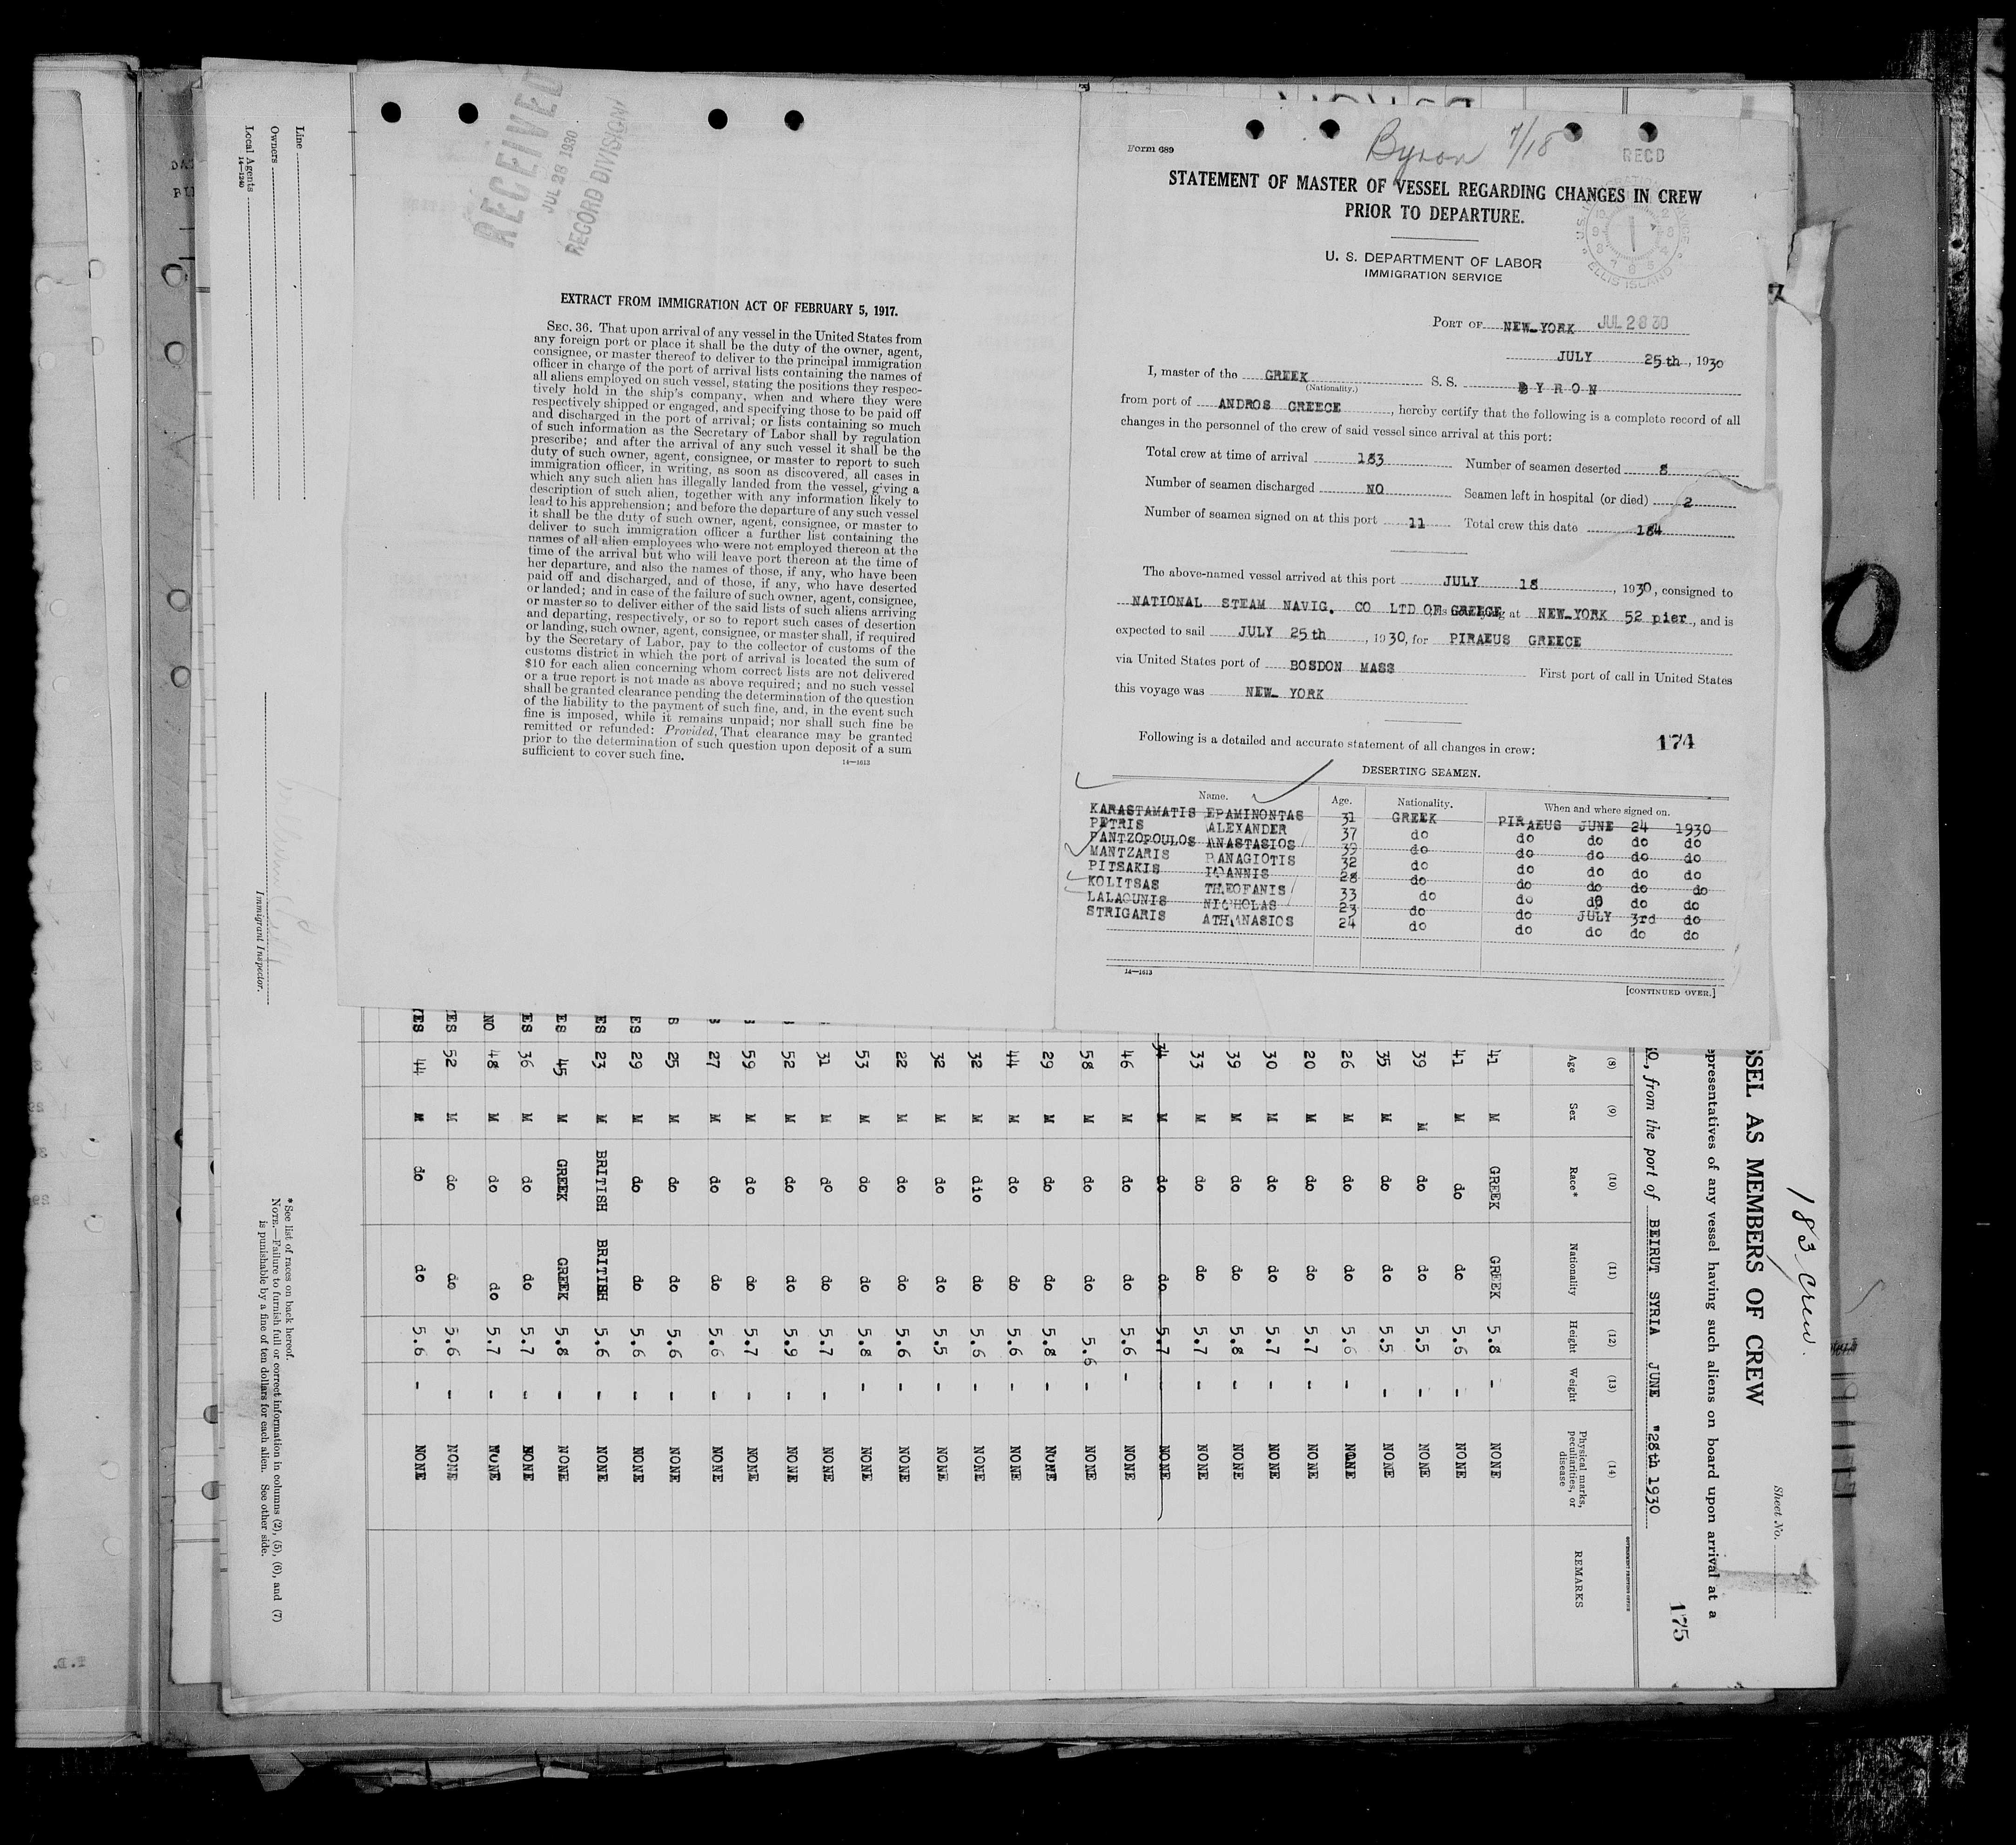 RECEIVED
JUL 28 1930
RECORD DIVISION
EXTRACT FROM IMMIGRATION ACT OF FEBRUARY 5, 1917.
SEC. 36. That upon arrival of any vessel in the United States from
any foreign port or place it shall be the duty of the owner, agent,
consignee, or master thereof to deliver to the principal immigration
officer in charge of the port of arrival lists containing the names of
all aliens employed on such vessel, stating the positions they respec-
tively hold in the ship's company, when and where they were
respectively shipped or engaged, and specifying those to be paid off
and discharged in the port of arrival; or lists containing so much
of such information as the Secretary of Labor shall by regulation
prescribe; and after the arrival of any such vessel it shall be the
duty of such owner, agent, consignee, or master to report to such
immigration officer, in writing, as soon as discovered, all cases in
which any such alien has illegally landed from the vessel, giving a
description of such alien, together with any information likely to
lead to his apprehension; and before the departure of any such vessel
it shall be the duty of such owner, agent, consignee, or master to
deliver to such immigration officer a further list containing the
names of all alien employees who were not employed thereon at the
time of the arrival but who will leave port thereon at the time of
her departure, and also the names of those, if any, who have been
paid off and discharged, and of those, if any, who have deserted
or landed; and in case of the failure of such owner, agent, consignee,
or master so to deliver either of the said lists of such aliens arriving
and departing, respectively, or so to report such cases of desertion
or landing, such owner, agent, consignee, or master shall, if required
by the Secretary of Labor, pay to the collector of customs of the
customs district in which the port of arrival is located the sum of
$10 for each alien concerning whom correct lists are not delivered
or a true report is not made as above required; and no such vessel
shall be granted clearance pending the determination of the question
of the liability to the payment of such fine, and, in the event such
fine is imposed, while it remains unpaid; nor shall such fine be
remitted or refunded: Provided, That clearance may be granted
prior to the determination of such question upon deposit of a sum
sufficient to cover such fine.
14—1613
Form 689
Byron 7/18
RECD
STATEMENT OF MASTER OF VESSEL REGARDING CHANGES IN CREW
PRIOR TO DEPARTURE.
U. S. DEPARTMENT OF LABOR
IMMIGRATION SERVICE
ELLIS ISLAND
PORT OF NEW-YORK JUL 28 30
JULY 25th, 1930
I, master of the GREEK S. S. BYRON
(Nationality.)
from port of ANDROS GREECE, hereby certify that the following is a complete record of all
changes in the personnel of the crew of said vessel since arrival at this port:
Total crew at time of arrival 183 Number of seamen deserted 8
Number of seamen discharged NO Seamen left in hospital (or died) 2
Number of seamen signed on at this port 11 Total crew this date 184
The above-named vessel arrived at this port JULY 18, 1930, consigned to
NATIONAL STEAM NAVIG. CO LTD OF GREECE at NEW-YORK 52 pier, and is
expected to sail JULY 25th, 1930, for PIRAEUS GREECE
via United States port of BOSDON MASS First port of call in United States
this voyage was NEW- YORK
Following is a detailed and accurate statement of all changes in crew:
174
DESERTING SEAMEN.
Name. Age. Nationality. When and where signed on.
KARASTAMATIS EPAMINONTAS 31 GREEK PIRAEUS JUNE 24 1930
PETRIS ALEXANDER 37 do do do do do
PANTZOPOULOS ANASTASIOS 39 do do do do do
MANTZARIS PANAGIOTIS 32 do do do do do
PITSAKIS IOANNIS 28 do do do do do
KOLITSAS THEOFANIS 33 do do do do do
LALAOUNIS NICHOLAS 23 do do JULY 3rd do
STRIGARIS ATHANASIOS 24 do do do do do
14—1613
[CONTINUED OVER.]
183 Crew.
Sheet No.
SSEL AS MEMBERS OF CREW
epresentatives of any vessel having such aliens on board upon arrival at a
175
O, from the port of BEIRUT SYRIA JUNE "28th 1930
GOVERNMENT PRINTING OFFICE
(8) (9) (10) (11) (12) (13) (14)
Age Sex Race* Nationality Height Weight Physical marks, peculiarities, or disease REMARKS
41 M GREEK GREEK 5.8 - NONE
41 M do do 5.6 - NONE
39 M do do 5.5 - NONE
35 M do do 5.5 - NONE
26 M do do 5.6 - NONE
20 M do do 5.7 - NONE
30 M do do 5.7 - NONE
39 M do do 5.8 - NONE
33 M do do 5.7 - NONE
34 M do do 5.7 - NONE
46 M do do 5.6 - NONE
58 M do do 5.6 - NONE
29 M do do 5.8 - NONE
44 M do do 5.6 - NONE
32 M dio do 5.6 - NONE
32 M do do 5.5 - NONE
22 M do do 5.6 - NONE
53 M do do 5.8 - NONE
31 M do do 5.7 - NONE
52 M do do 5.9 - NONE
59 M do do 5.7 - NONE
27 M do do 5.6 - NONE
25 M do do 5.6 - NONE
ES 29 M do do 5.6 - NONE
ES 23 M BRITISH BRITISH 5.6 - NONE
ES 45 M GREEK GREEK 5.8 - NONE
ES 36 M do do 5.7 - NONE
NO 48 M do do 5.7 - NONE
ES 52 M do do 5.6 - NONE
YES 44 M do do 5.6 - NONE
Line
Owners
Local Agents
14—1240
Immigrant Inspector.
*See list of races on back hereof.
NOTE.—Failure to furnish full or correct information in columns (2), (5), (6), and (7)
is punishable by a fine of ten dollars for each alien. See other side.